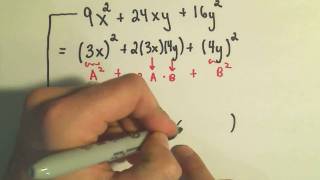 9x² + 24xy + 16y²
= (3x)² + 2(3x)(4y) + (4y)²
A² + A · B + B²
( )